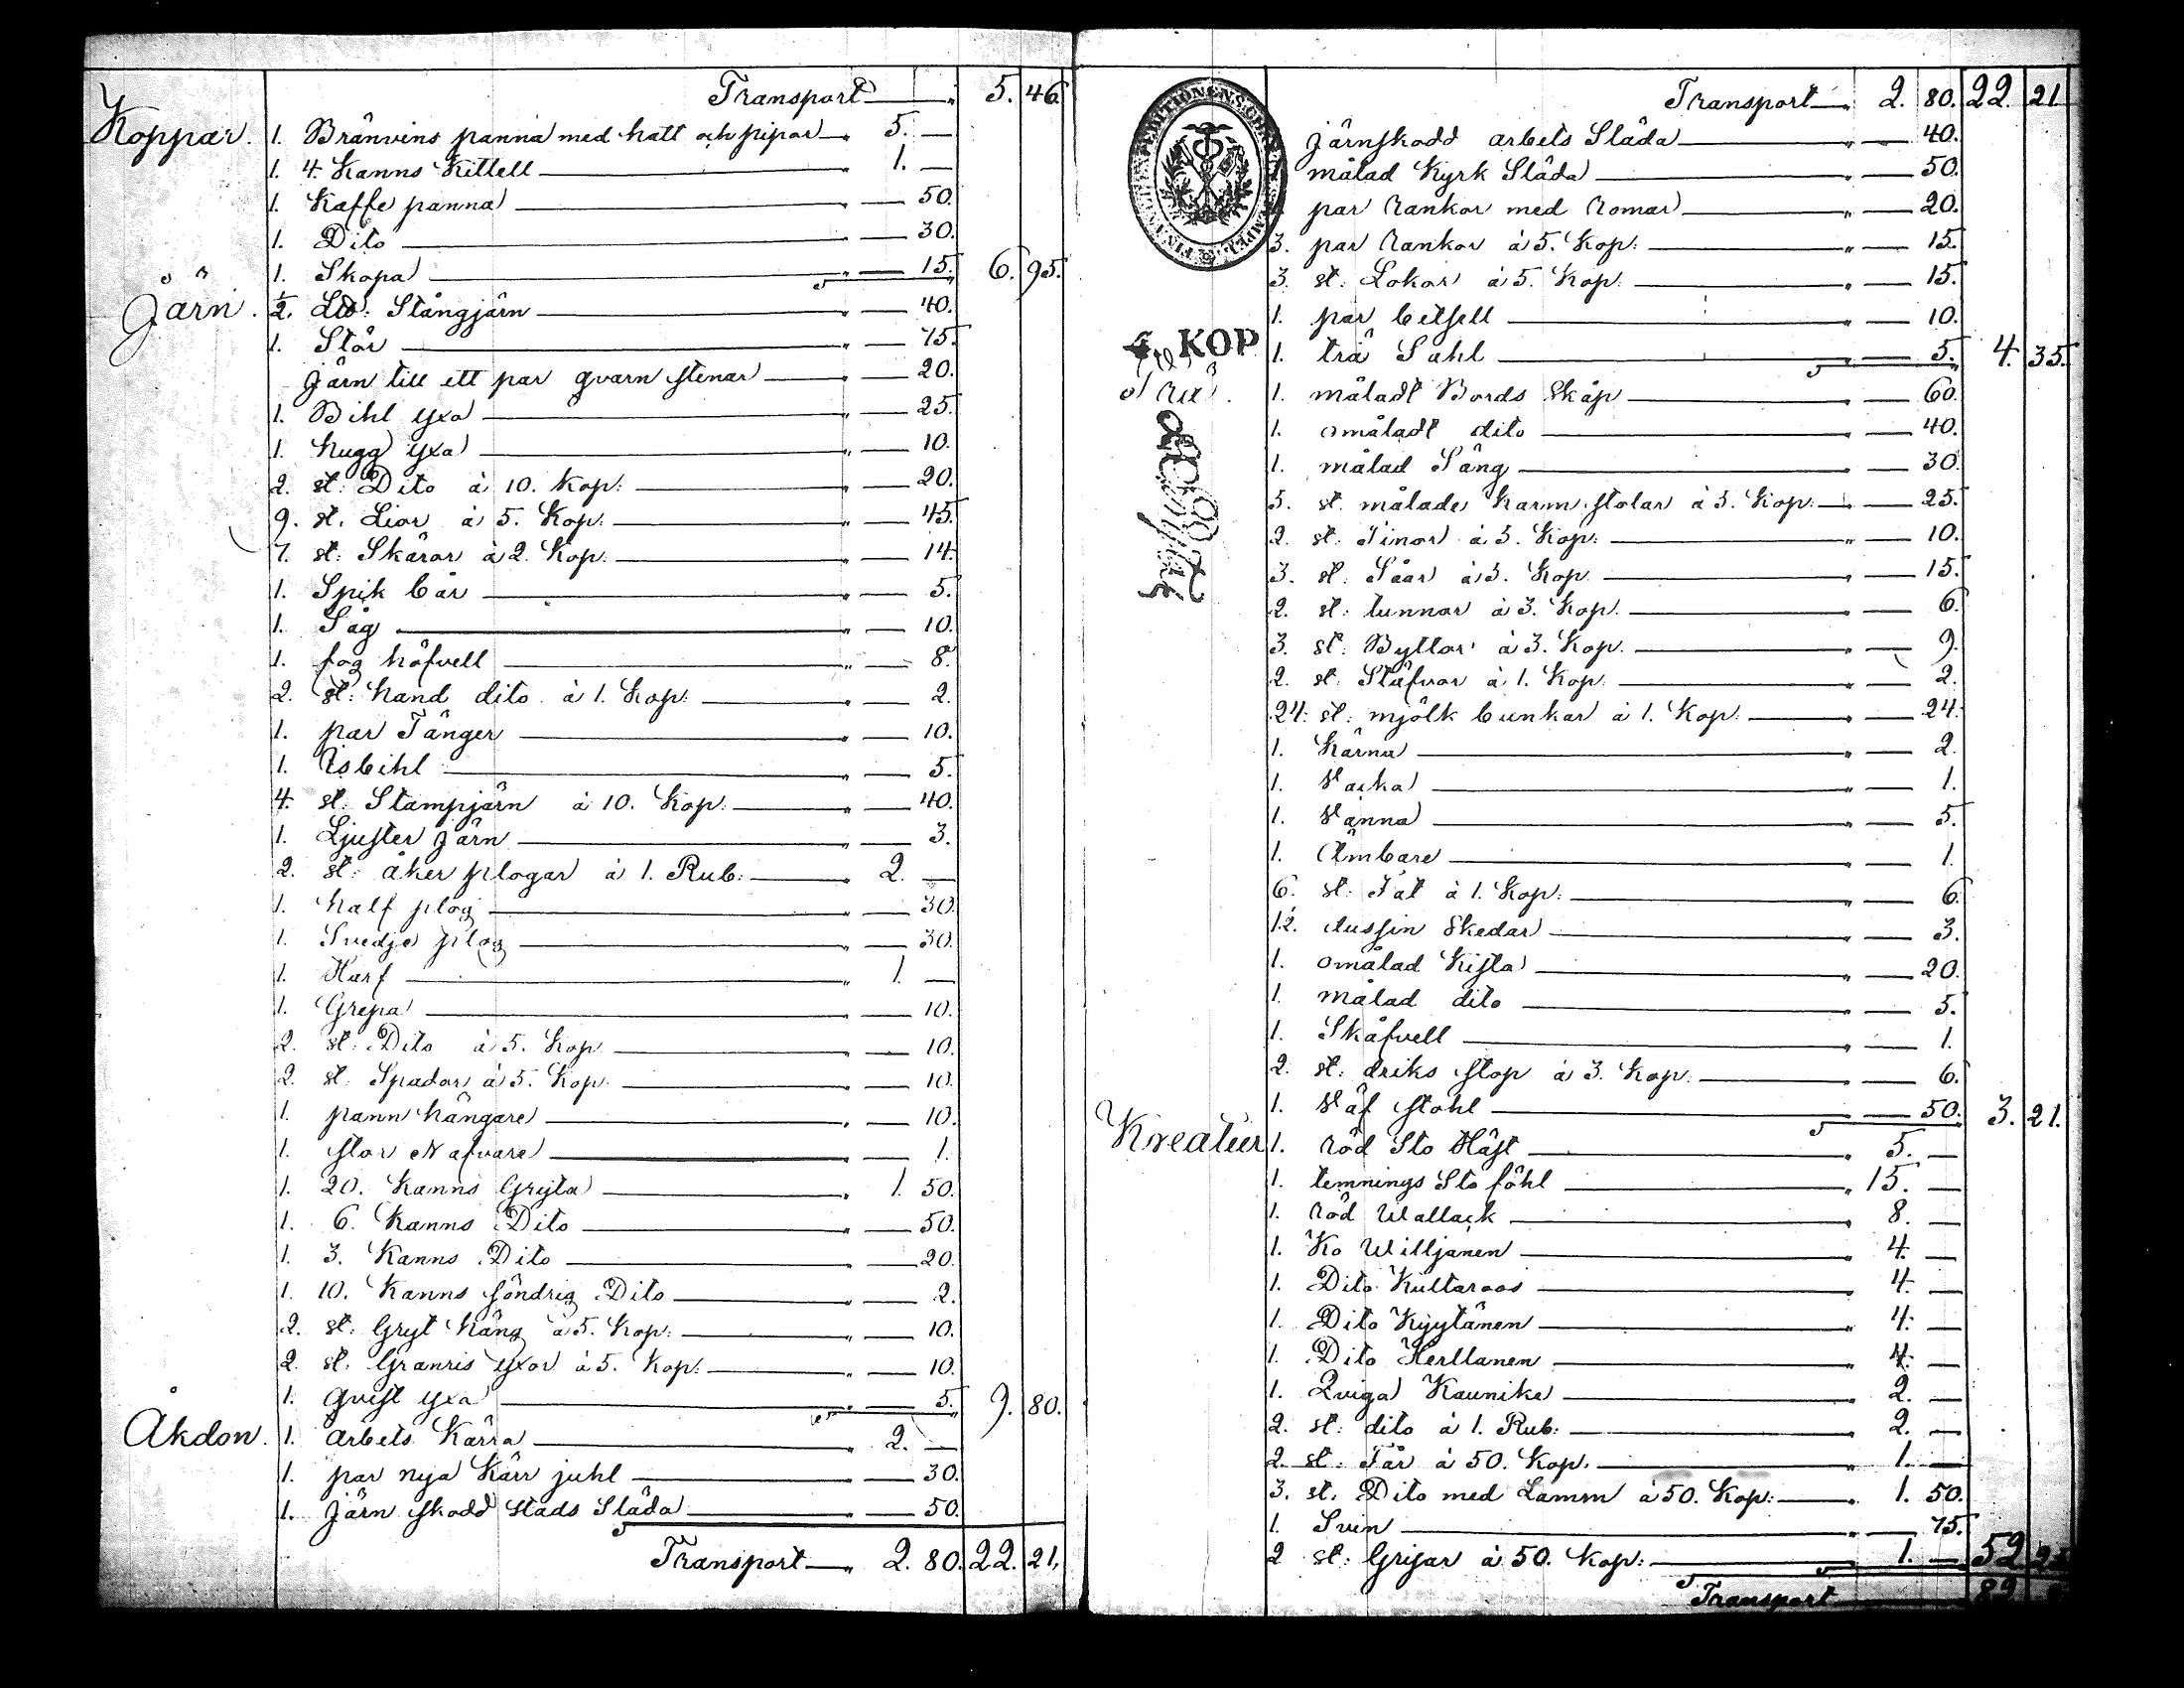 Transport " 5. 46.
Koppar. 1. Bränvins panna med hatt och pipor " 5. —
1. 4. Kanns Kittell " 1. —
1. Kaffe panna " — 50.
1. Dito " — 30.
1. Skopa " — 15. 6. 95.
Järn. ½. L℔: Stångjärn " — 40.
1. Stör " — 75.
Järn till ett par qvarn stenar " — 20.
1. Bihl yxa " — 25.
1. hugg yxa " — 10.
2. st: Dito à 10. Kop: " — 20.
9. st. Lior à 5. Kop: " — 45.
7. st: Skäror à 2. Kop: " — 14.
1. Spik bår " — 5.
1. Såg " — 10.
1. fog höfvell " — 8.
2. st: hand dito à 1. Kop: " — 2.
1. par Tänger " — 10.
1. Isbihl " — 5.
4. st: Stampjärn à 10. Kop: " — 40.
1. Ljuster järn " — 3.
2. st: åker plogar à 1. Rub: " 2. —
1. half plog " — 30.
1. Svedje plog " — 30.
1. Harf " 1. —
1. Grepa " — 10.
2. st: Dito à 5. Kop " — 10.
2. st: Spador à 5. Kop: " — 10.
1. pann hängare " — 10.
1. stor Nafvare " — 1.
1. 20. Kanns Gryta " 1. 50.
1. 6. Kanns Dito " — 50.
1. 3. Kanns Dito " — 20.
1. 10. Kanns söndrig Dito " — 2.
2. st: Gryt häng à 5. Kop: " — 10.
2. st. Granris yxor à 5. Kop: " — 10.
1. qvist yxa " — 5. 9. 80.
Åkdon. 1. arbets Kärra " 2. —
1. par nya Kärr juhl " — 30.
1. Järn skodd stads Släda " — 50.
Transport " 2. 80. 22. 21.
Transport " 2. 80. 22. 21
järnskodd arbets Släda " — 40.
1. målad Kyrk Släda " — 50.
par Rankor med Romar " — 20.
3. par Rankor à 5. Kop: " — 15.
3. st: Lokor à 5. Kop: " — 15.
1. par betsell " — 10.
KOP
1. trä Sahl " — 5. 4. 35.
1. måladt Bords Skåp " — 60.
1. omåladt dito " — 40.
1. målad Säng " — 30.
5. st. målade Karm stolar à 5. Kop: " — 25.
2. st: Tinor à 5. Kop: " — 10.
3. st. Såar à 5. Kop " — 15.
2. st: tunnor à 3. Kop. " — 6.
3. st: Byttor à 3. Kop. " — 9.
2. st: Stäfvor à 1. Kop. " — 2.
24. st: mjölk bunkar à 1. Kop: " — 24.
1. Kärna " — 2.
1. " — 1.
1. " — 5.
1. Ämbare " — 1.
6. st: Fat à 1. Kop: " — 6.
12. dussin Skedar " — 3.
1. omålad Kista " — 20.
1. målad dito " — 5.
1. Skäfvell " — 1.
2. st: driks stop à 3. Kop. " — 6.
1. Väf stohl " — 50. 3. 21.
Kreatur 1. röd Sto Häst " 5. —
1. temnings Sto föhl " 15. —
1. röd Wallack " 8. —
1. Ko Willjänen " 4. —
1. Dito Kultaroos " 4. —
1. Dito Kyytänen " 4. —
1. Dito Herttanen " 4. —
1. Quiga Kaunike " 2. —
2. st: dito à 1. Rub: " 2. —
2. st: Får à 50. Kop. " 1. —
3. st. Dito med Lamm à 50. Kop: " 1. 50.
1. Svin " — 75.
2 st: Grisar à 50. Kop: " 1. — 52
Transport 89